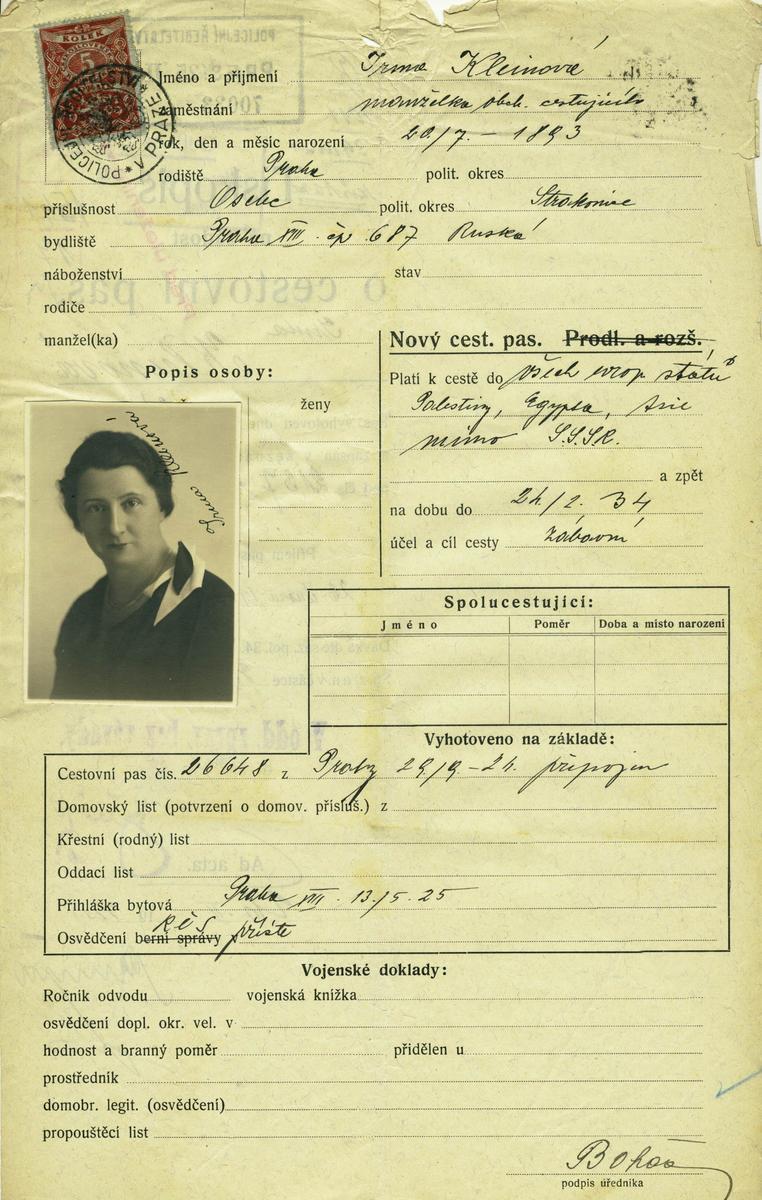 KOLEK
5
POLICEJNÍ ŘEDITELSTVÍ
POLICEJNÍ ŘEDITELSTVÍ * V PRAZE *
Jméno a přijmení Irma Kleinová
zaměstnání manželka obch. cestujícího
rok, den a měsíc narození 20/7. – 1893
rodiště Praha polit. okres
příslušnost Osebc polit. okres Strakonice
bydliště Praha XIII. čp. 687 Ruská
náboženství stav
rodiče
manžel(ka)
Nový cest. pas. Prodl. a rozš.
Popis osoby:
Platí k cestě do všech evrop. států
ženy
Palestiny, Egypta, Asie
mimo S.S.S.R.
a zpět
na dobu do 24/2. 34
účel a cíl cesty zábavní
Irma Kleinová
Spolucestující:
Jméno Poměr Doba a místo narození
Vyhotoveno na základě:
Cestovní pas čís. 26648 z Prahy 29/9 – 24. připojen
Domovský list (potvrzení o domov. přísluš.) z
Křestní (rodný) list
Oddací list
Přihláška bytová Praha XIII. 13./5. 25
Osvědčení berní správy příště
Vojenské doklady:
Ročník odvodu vojenská knížka
osvědčení dopl. okr. vel. v
hodnost a branný poměr přidělen u
prostředník
domobr. legit. (osvědčení)
propouštěcí list
podpis úředníka